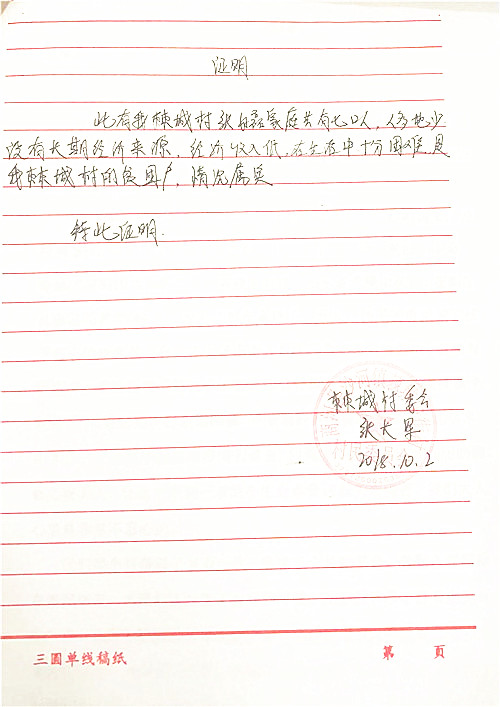 证明
此有我棘城村张 磊家庭共有七口人，人多地少
没有长期经济来源，经济收入低，在生活中十分困难，是
我棘城村的贫困户，情况属实
特此证明
棘城村委会
张大早
2018.10.2
三圆单线稿纸
第 页